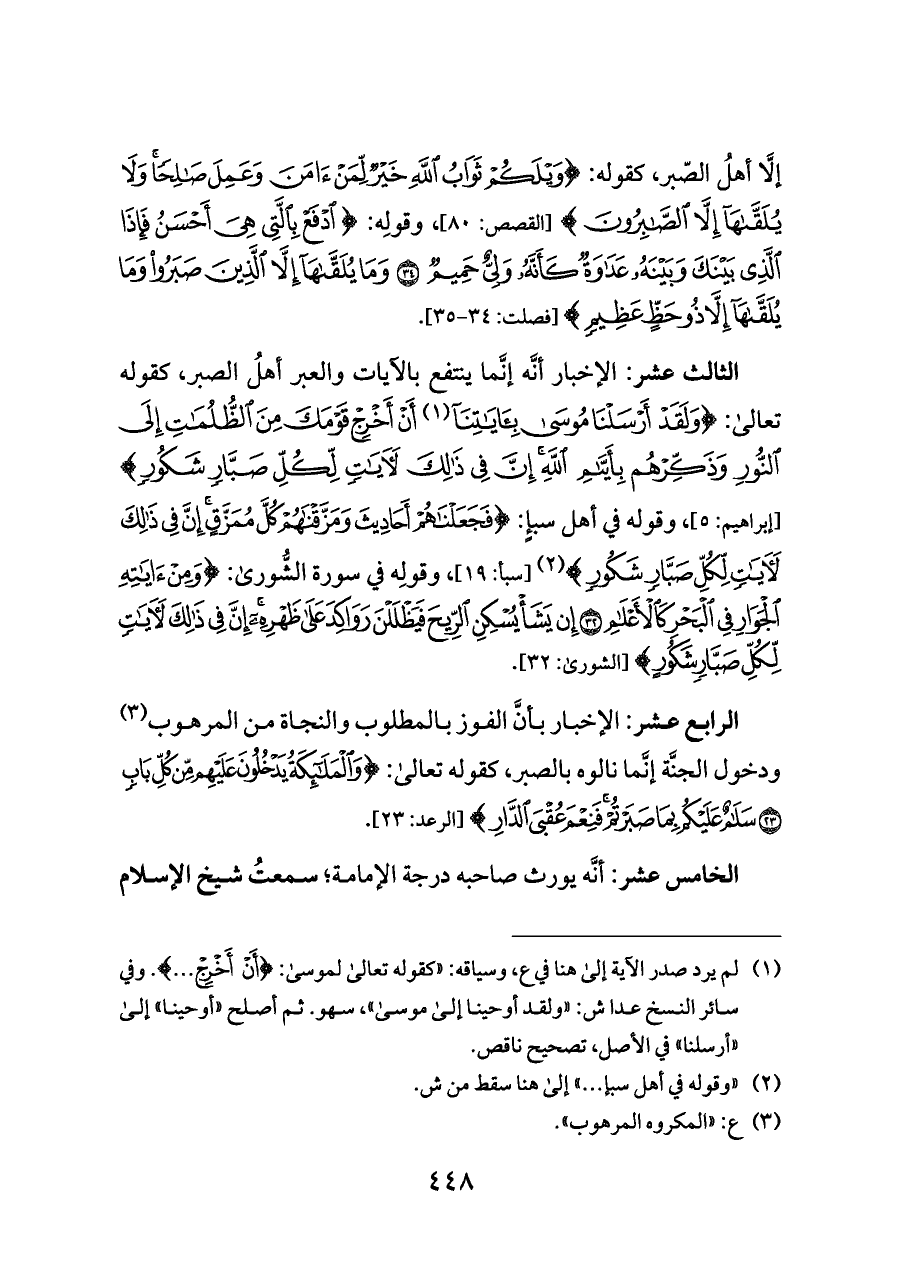 إلَّا أهلُ الصّبر، كقوله: ﴿وَيْلَكُمْ ثَوَابُ ٱللَّهِ خَيْرٌ لِّمَنْ ءَامَنَ وَعَمِلَ صَٰلِحًا ۚ وَلَا
يُلَقَّىٰهَآ إِلَّا ٱلصَّٰبِرُونَ﴾ [القصص: ٨٠]، وقولِه: ﴿ٱدْفَعْ بِٱلَّتِى هِىَ أَحْسَنُ فَإِذَا
ٱلَّذِى بَيْنَكَ وَبَيْنَهُۥ عَدَٰوَةٌ كَأَنَّهُۥ وَلِىٌّ حَمِيمٌ ٣٤ وَمَا يُلَقَّىٰهَآ إِلَّا ٱلَّذِينَ صَبَرُوا۟ وَمَا
يُلَقَّىٰهَآ إِلَّا ذُو حَظٍّ عَظِيمٍ﴾ [فصلت: ٣٤-٣٥].
الثالث عشر: الإخبار أنَّه إنَّما ينتفع بالآيات والعبر أهلُ الصبر، كقوله
تعالىٰ: ﴿وَلَقَدْ أَرْسَلْنَا مُوسَىٰ بِـَٔايَٰتِنَآ(١) أَنْ أَخْرِجْ قَوْمَكَ مِنَ ٱلظُّلُمَٰتِ إِلَى
ٱلنُّورِ وَذَكِّرْهُم بِأَيَّىٰمِ ٱللَّهِ ۚ إِنَّ فِى ذَٰلِكَ لَءَايَٰتٍ لِّكُلِّ صَبَّارٍ شَكُورٍ﴾
[إبراهيم: ٥]، وقوله في أهل سبإٍ: ﴿فَجَعَلْنَٰهُمْ أَحَادِيثَ وَمَزَّقْنَٰهُمْ كُلَّ مُمَزَّقٍ ۚ إِنَّ فِى ذَٰلِكَ
لَءَايَٰتٍ لِّكُلِّ صَبَّارٍ شَكُورٍ﴾(٢) [سبأ: ١٩]، وقوله في سورة الشُّورىٰ: ﴿وَمِنْ ءَايَٰتِهِ
ٱلْجَوَارِ فِى ٱلْبَحْرِ كَٱلْأَعْلَٰمِ ٣٢ إِن يَشَأْ يُسْكِنِ ٱلرِّيحَ فَيَظْلَلْنَ رَوَاكِدَ عَلَىٰ ظَهْرِهِۦٓ ۚ إِنَّ فِى ذَٰلِكَ لَءَايَٰتٍ
لِّكُلِّ صَبَّارٍ شَكُورٍ﴾ [الشورىٰ: ٣٢].
الرابع عشر: الإخبار بأنَّ الفوز بالمطلوب والنجاة من المرهوب(٣)
ودخول الجنَّة إنَّما نالوه بالصبر، كقوله تعالىٰ: ﴿وَٱلْمَلَٰٓئِكَةُ يَدْخُلُونَ عَلَيْهِم مِّن كُلِّ بَابٍ
٢٣ سَلَٰمٌ عَلَيْكُم بِمَا صَبَرْتُمْ ۚ فَنِعْمَ عُقْبَى ٱلدَّارِ﴾ [الرعد: ٢٣].
الخامس عشر: أنَّه يورث صاحبه درجة الإمامة؛ سمعتُ شيخ الإسلام
(١) لم يرد صدر الآية إلىٰ هنا في ع، وسياقه: «كقوله تعالىٰ لموسىٰ: ﴿أَنْ أَخْرِجْ...﴾. وفي
سائر النسخ عدا ش: «ولقد أوحينا إلىٰ موسىٰ»، سهو. ثم أصلح «أوحينا» إلىٰ
«أرسلنا» في الأصل، تصحيح ناقص.
(٢) «وقوله في أهل سبإ...» إلىٰ هنا سقط من ش.
(٣) ع: «المكروه المرهوب».
٤٤٨